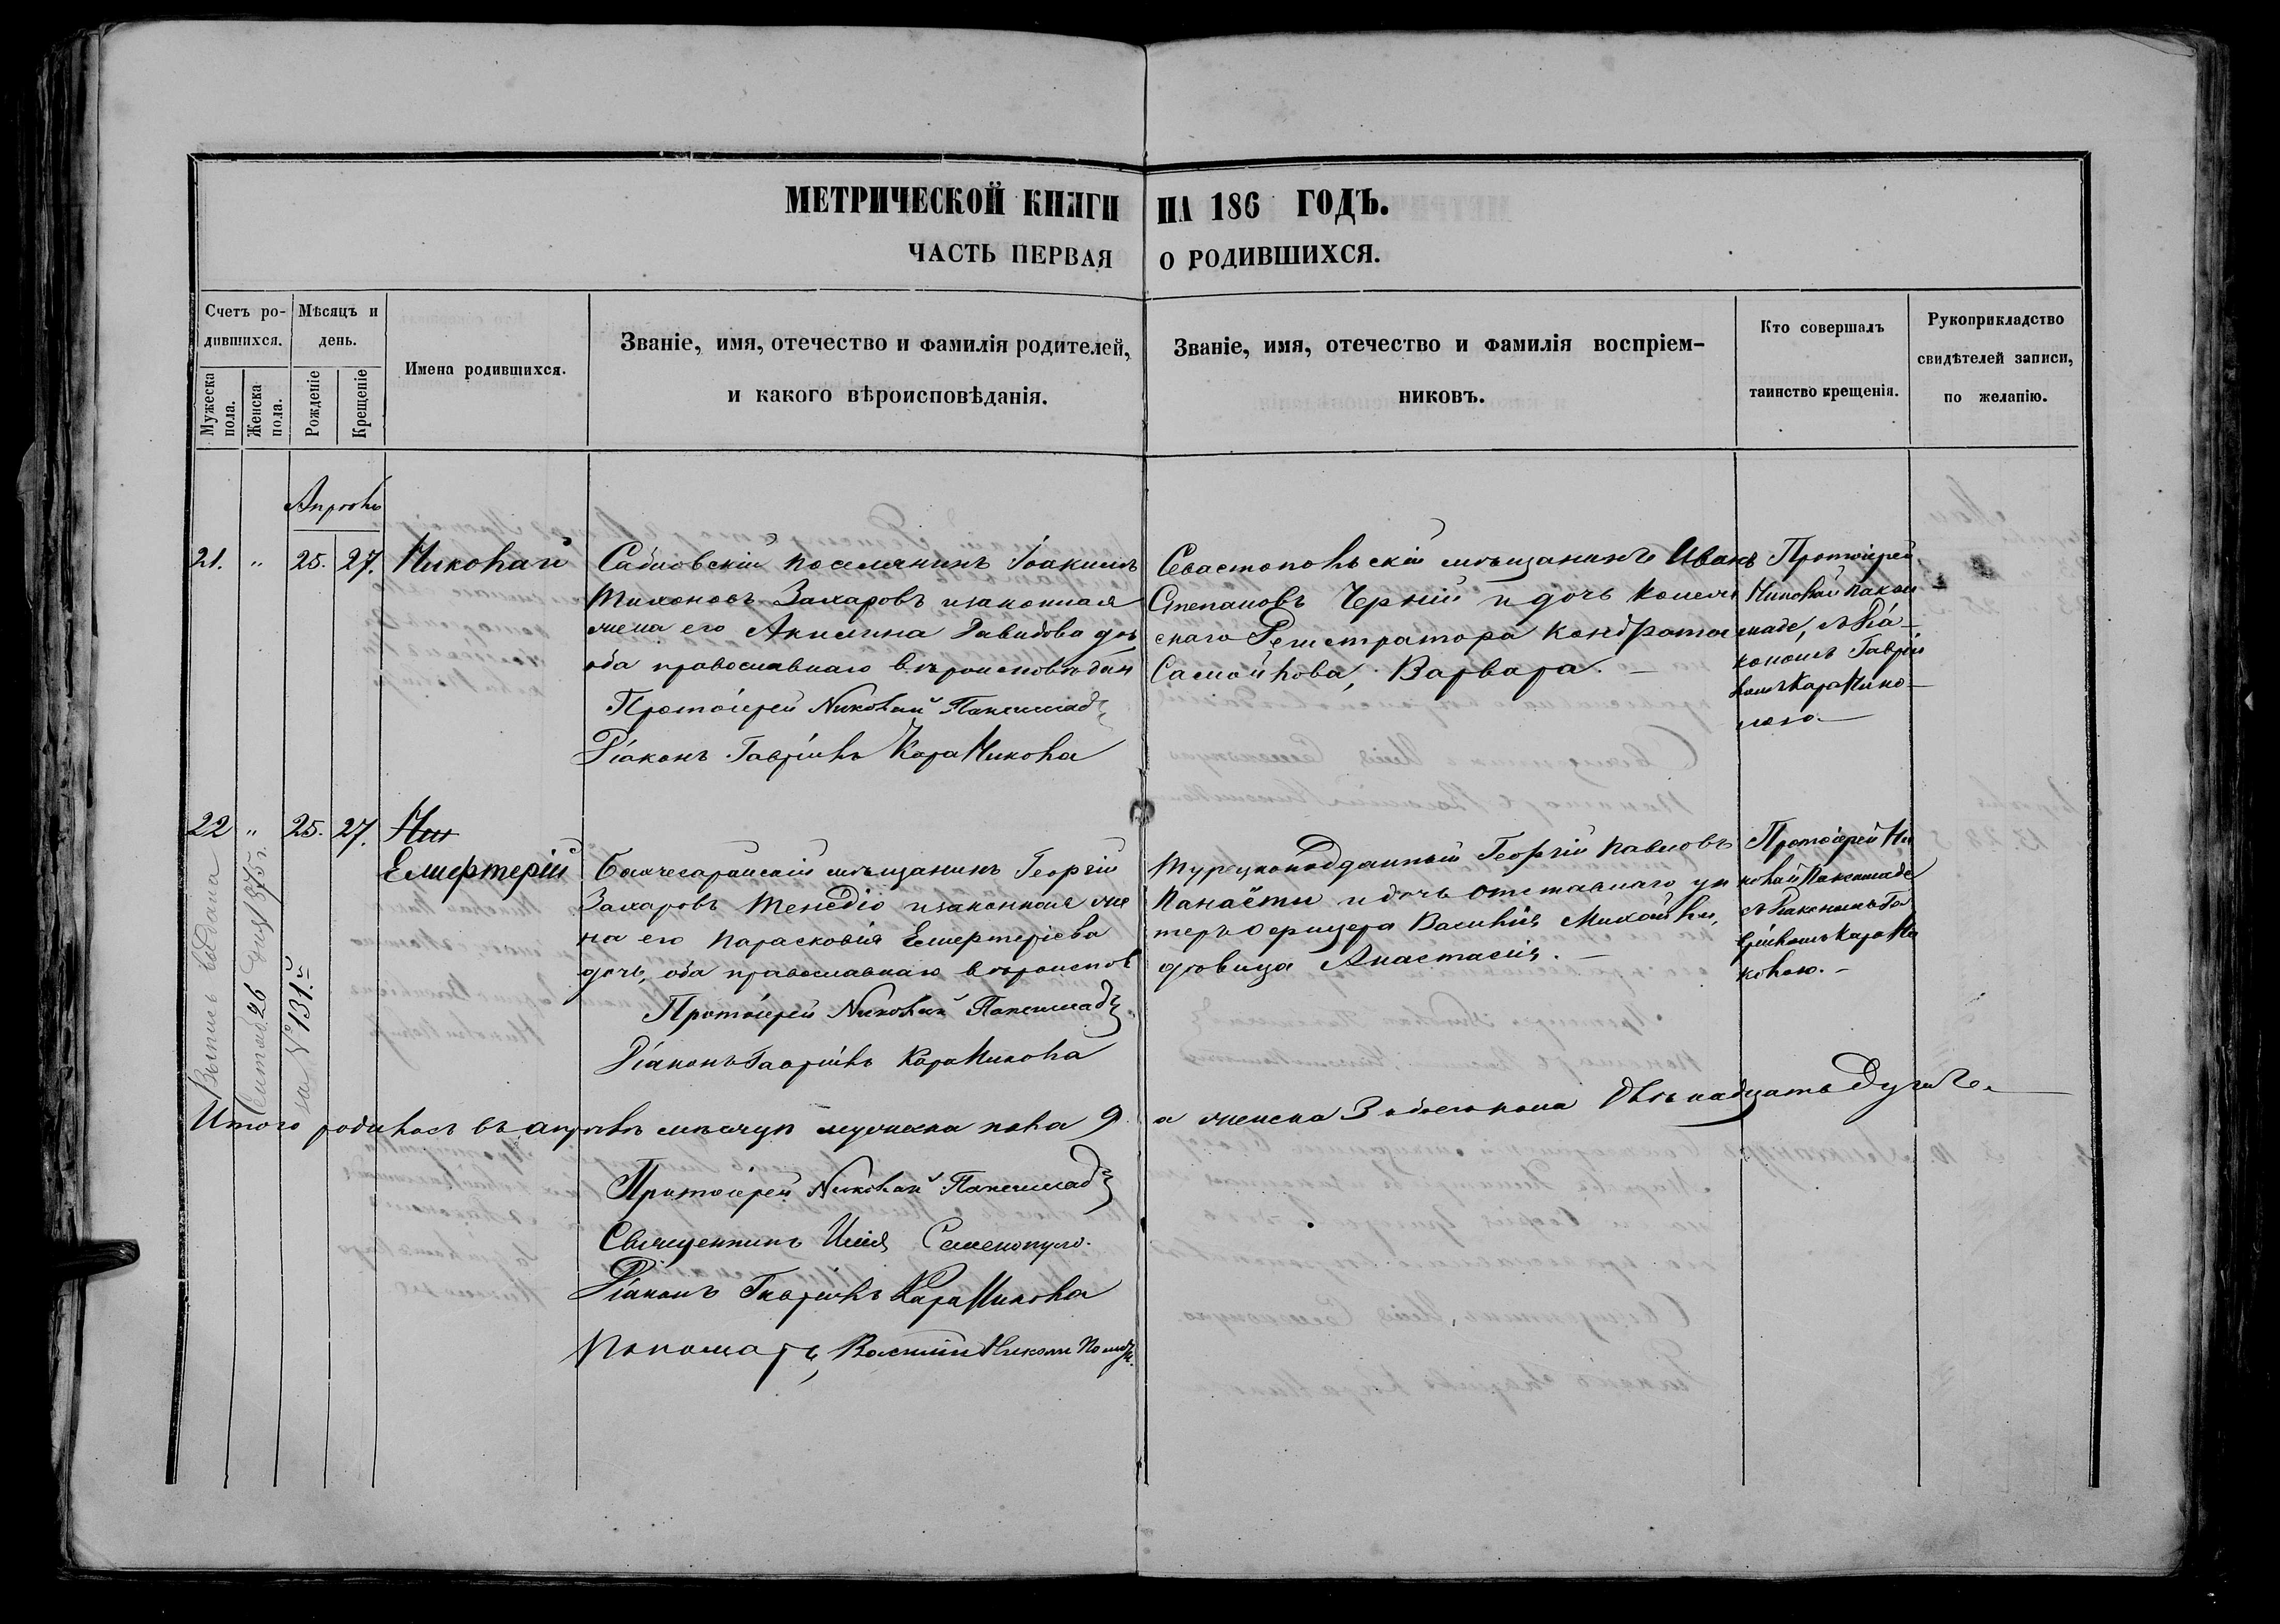 МЕТРИЧЕСКОЙ КНИГИ НА 186 ГОДЪ.
ЧАСТЬ ПЕРВАЯ О РОДИВШИХСЯ.
Счетъ ро-
дившихся.
Мужеска пола.
Женска пола.
Мѣсяцъ и
день.
Рожденіе
Крещеніе
Имена родившихся.
Званіе, имя, отечество и фамилія родителей,
и какого вѣроисповѣданія.
Званіе, имя, отечество и фамилія воспріем-
никовъ.
Кто совершалъ
таинство крещенія.
Рукоприкладство
свидѣтелей записи,
по желанію.
Апрѣль
21. " 25. 27. Николай
Сабловскій поселянинъ Іоакимъ
Тихоновъ Захаровъ и законная
жена его Акилина Давидова дочь
оба православнаго вѣроисповѣдан
Протоіерей Николай
Діаконъ Гавріилъ КараНикола
Севастопольскій мѣщанинъ Иванъ
Степановъ Черній и дочь Коллеж
скаго Регистратора Кондрата
Самойлова, Варвара. –
Протоіерей
Николай
съ Діа-
кономъ Гаврі
ломъ КараНико-
лою. –
22 " 25. 27. Ник
Елиферерій
Бахчесарайскій мѣщанинъ Георгій
Захаровъ Тенедіо и законная же
на его Парасковія Елиферіева
дочь, оба православнаго вѣроиспов
Протоіерей Николай
Діаконъ Гавріилъ КараНикола
Турецкоподданный Георгій Павловъ
Панаёти и дочь отставнаго ун
теръ офицера Василія Михайли,
дѣвица Анастасія. –
Протоіерей Ни
колай
съ Діакономъ Га
вріиломъ КараНи
колою. –
Выпись выдана
Сентяб. 26 дня 1875 г.
за № 131.й
Итого родилось въ апрѣлѣ мѣсяцѣ мужеска пола 9 а женска 3 обоего пола двѣнадцать душъ. –
Протоіерей Николай
Священникъ Илія Семенопуло.
Діаконъ Гавріилъ КараНикола
Пономарь Василій